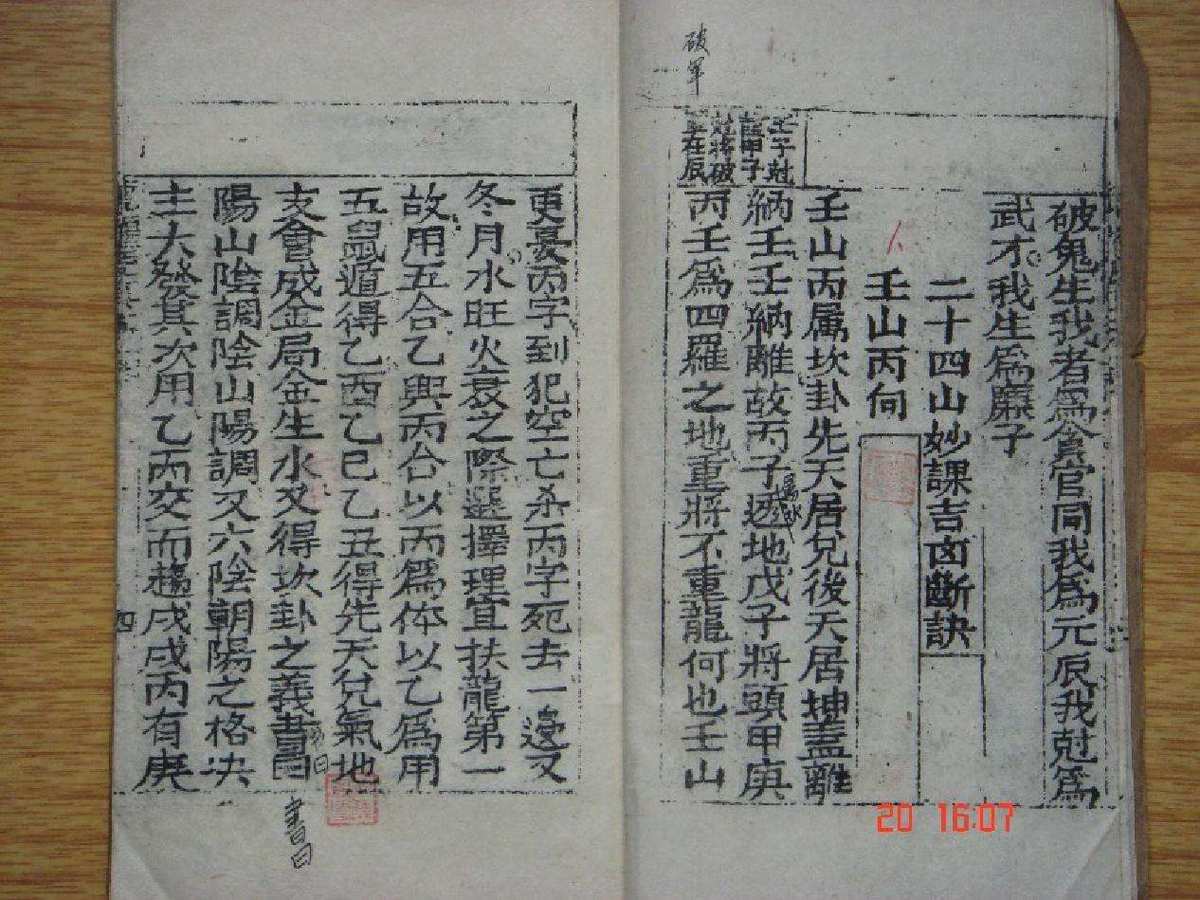 破軍
破鬼生我者為貪官同我為元辰我尅為
武才我生為廉子
二十四山妙課吉凶斷訣
壬山丙向
壬山丙属坎卦先天居兌後天居坤盖離
納壬壬納離故丙子透地戊子將頭甲庚
丙壬為四羅之地重將不重龍何也壬山
壬子尅
甲子
將破
在辰
更忌丙字到犯空亡杀丙字死去一邊又
冬月水旺火衰之際選擇理宜扶龍第一
故用五合乙與丙合以丙為体以乙為用
五鼠遁得乙酉乙巳乙丑得先天兌氣地
支會成金局金生水又得坎卦之義書曰
陽山陰調陰山陽調又六陰朝陽之格决
主大發其次用乙丙交而趨戌戌丙有庚
書曰
四
20 16:07